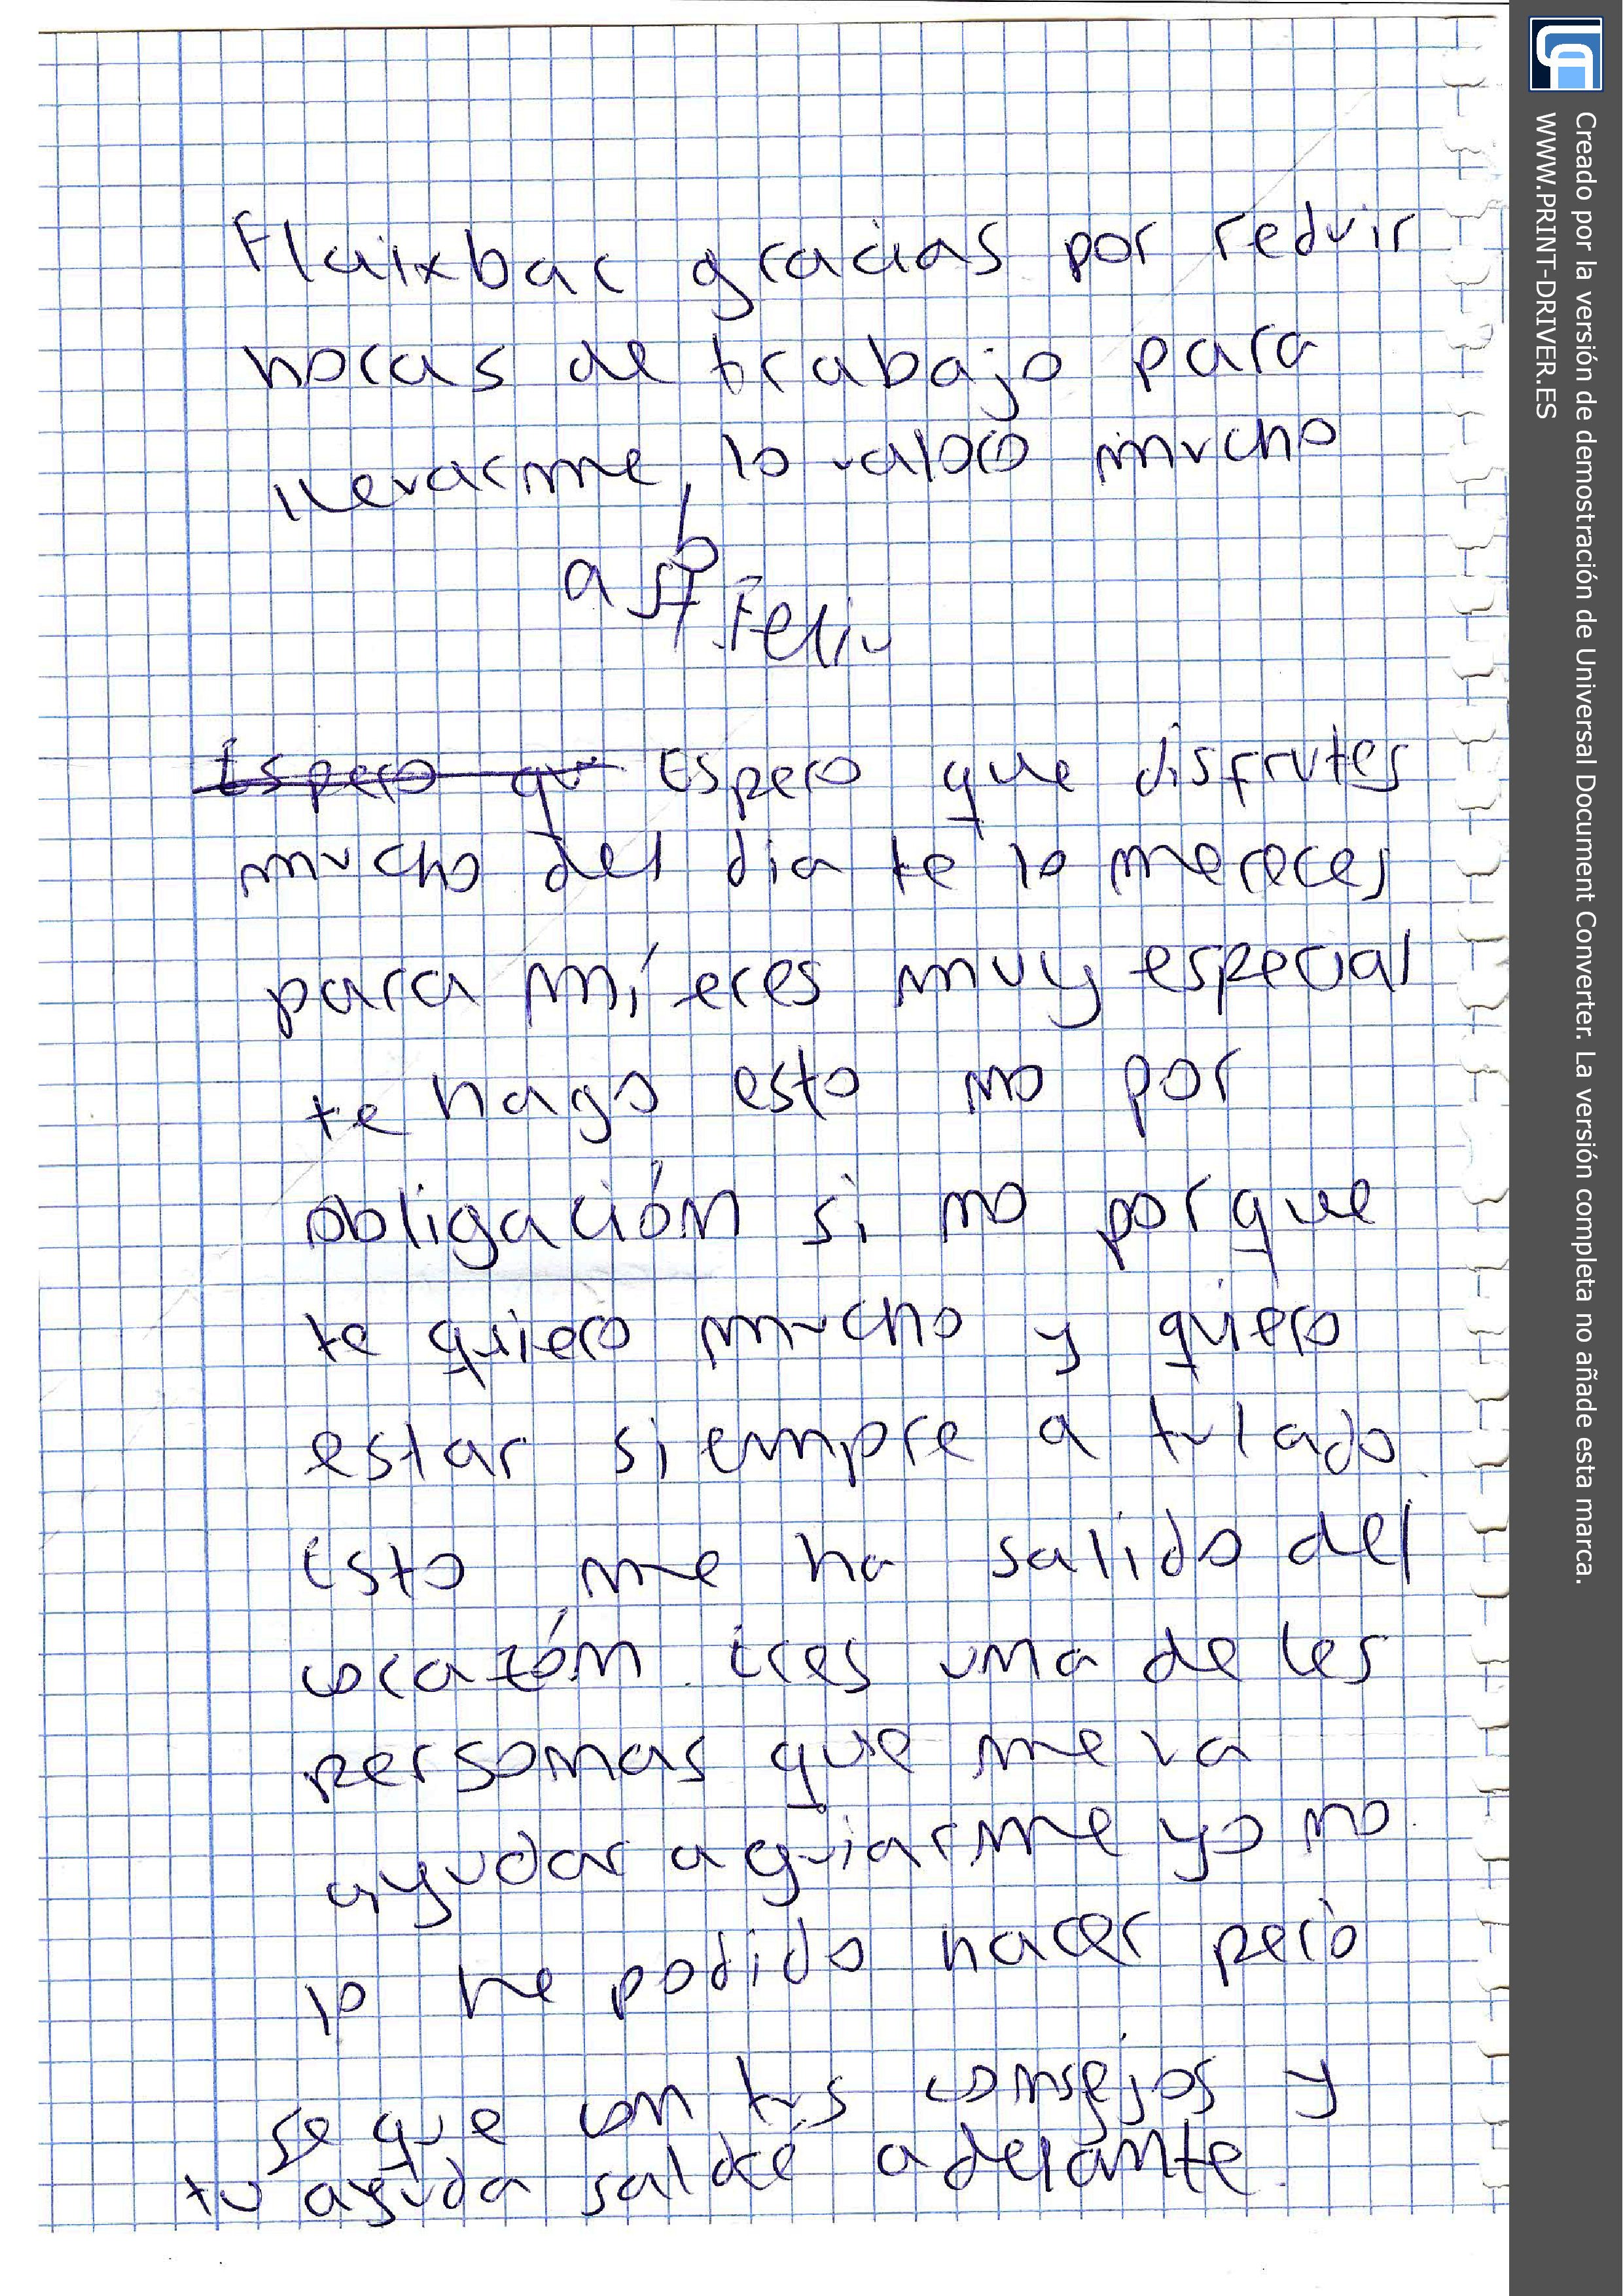 Flaixbac gracias por reduir
horas de trabajo para
llevarme, lo valoro mucho
a St Feliu
Espero qu Espero que disfrutes
mucho del dia te lo mereces
para mí eres muy especial
te hago esto no por
obligación si no porque
te quiero mucho y quiero
estar siempre a tu lado.
Esto me ha salido del
corazón. Eres una de les
personas que me va
ayudar a guiarme yo no
lo he podido hacer pero
se que con tus consejos y
tu ayuda saldré adelante.
Creado por la versión de demostración de Universal Document Converter. La versión completa no añade esta marca.
WWW.PRINT-DRIVER.ES